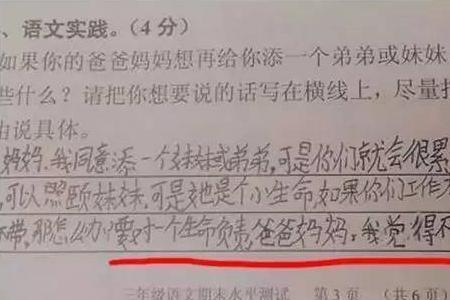 、语文实践。(4分)
如果你的爸爸妈妈想再给你添一个弟弟或妹妹
些什么?请把你想要说的话写在横线上,尽量把
由说具体。
妈妈,我同意添一个妹妹或弟弟,可是你们就会很累
,可以照顾妹妹,可是她是个小生命,如果你们工作
不带,那怎么办!要对一个生命负责,爸爸妈妈,我觉得不
三年级语文期末水平测试 第3页 (共6页)